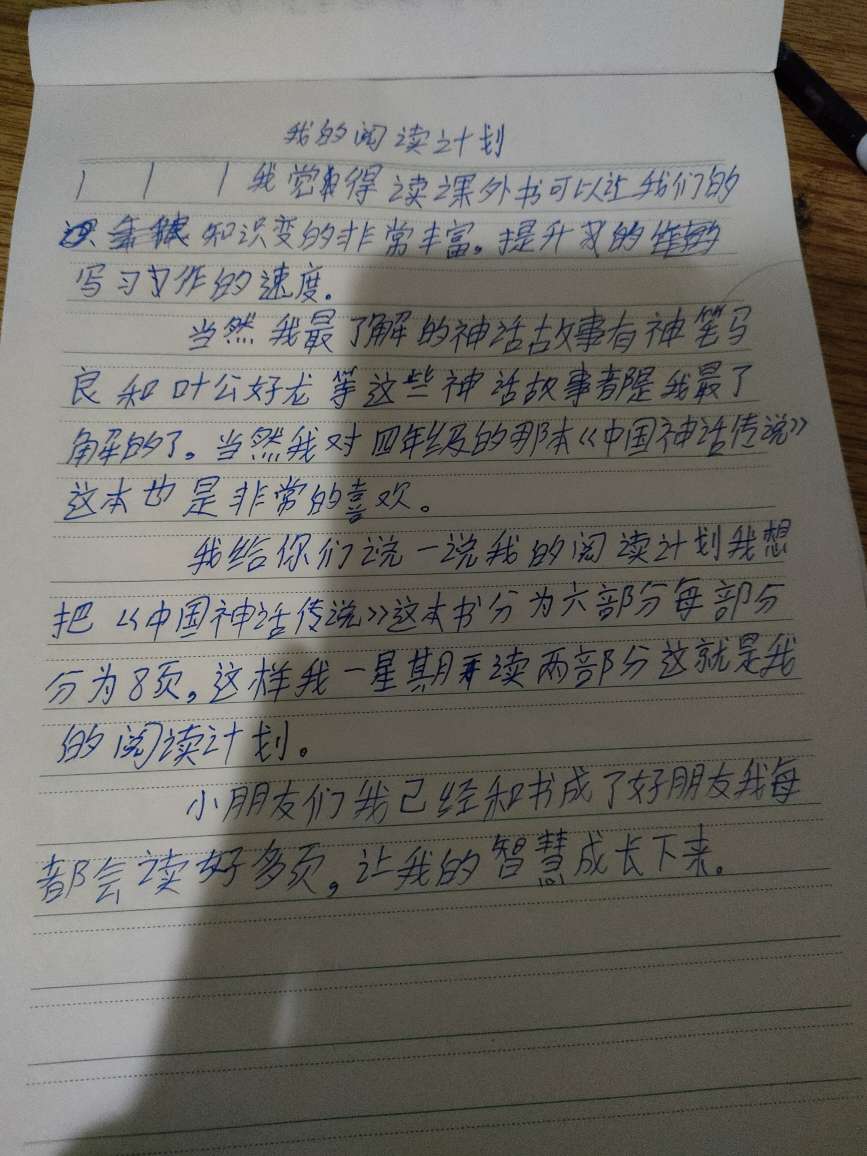 我的阅读计划
我觉得读课外书可以让我们的
知识变的非常丰富。提升我的
写习作的速度。
当然我最了解的神话故事有神笔马
良和叶公好龙等这些神话故事都是我最了
解的了。当然我对四年级的那本《中国神话传说》
这本也是非常的喜欢。
我给你们说一说我的阅读计划我想
把《中国神话传说》这本书分为六部分每部分
分为8页,这样我一星期读两部分这就是我
的阅读计划。
小朋友们我已经和书成了好朋友我每
都会读好多页,让我的智慧成长下来。